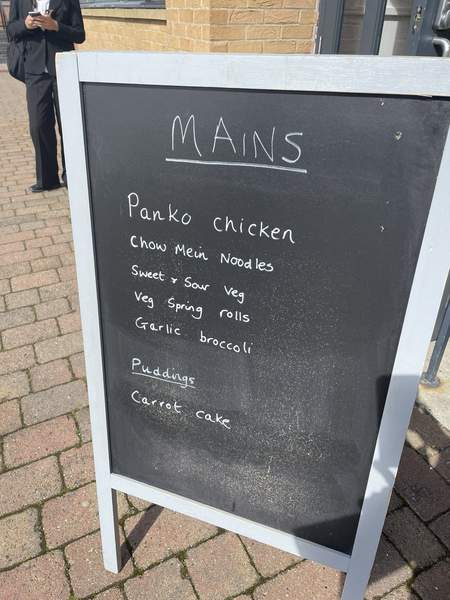 MAINS
Panko chicken
Chow Mein Noodles
Sweet & Sour Veg
Veg Spring rolls
Garlic broccoli
Puddings
Carrot cake